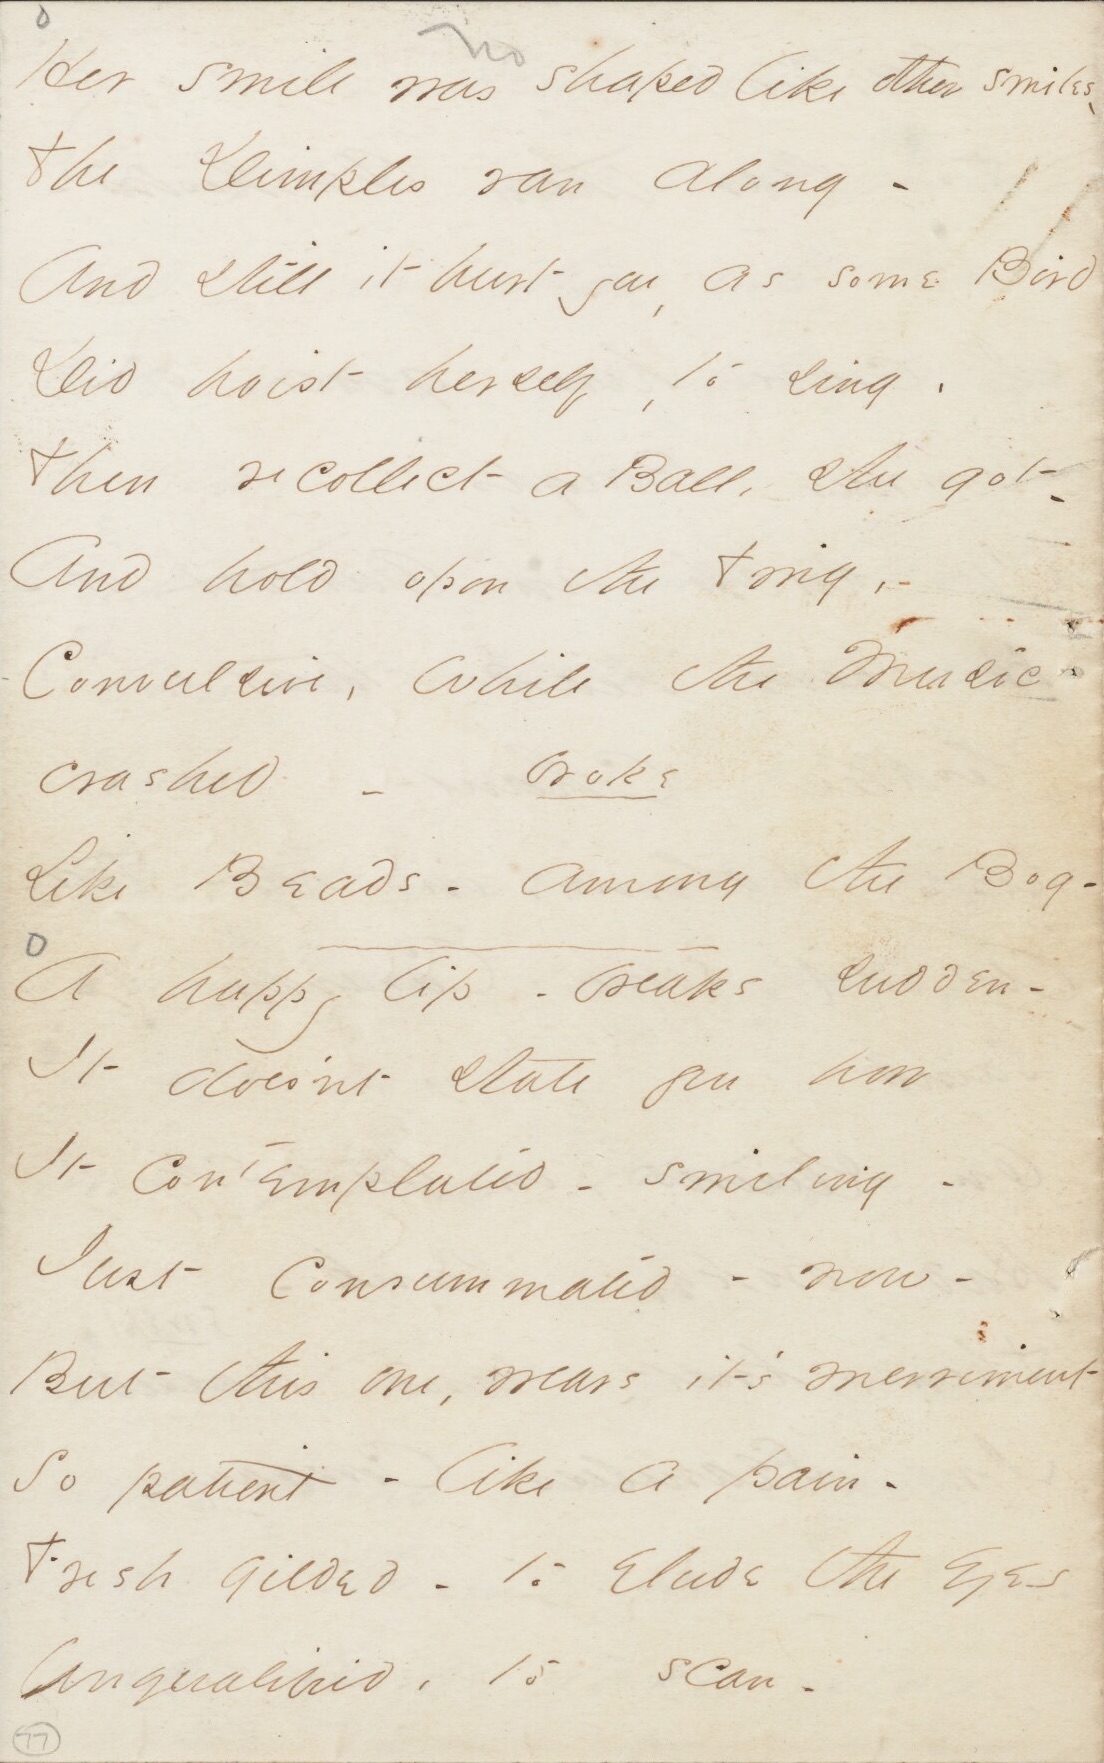 no
Her smile was shaped like other smiles,
The Dimples ran along -
And still it hurt you, as some Bird
Did hoist herself, to sing.
Then recollect a Ball, she got -
And hold upon the Twig, -
Convulsive, while the Music
crashed - broke
Like Beads - among the Bog -
A happy lip - breaks sudden -
It does'nt state you how
It contemplated - smiling -
Just consummated - now -
But this one, wears it's merriment
So patient - like a pain -
Fresh gilded - to elude the Eyes
Unqualified, to scan -
77